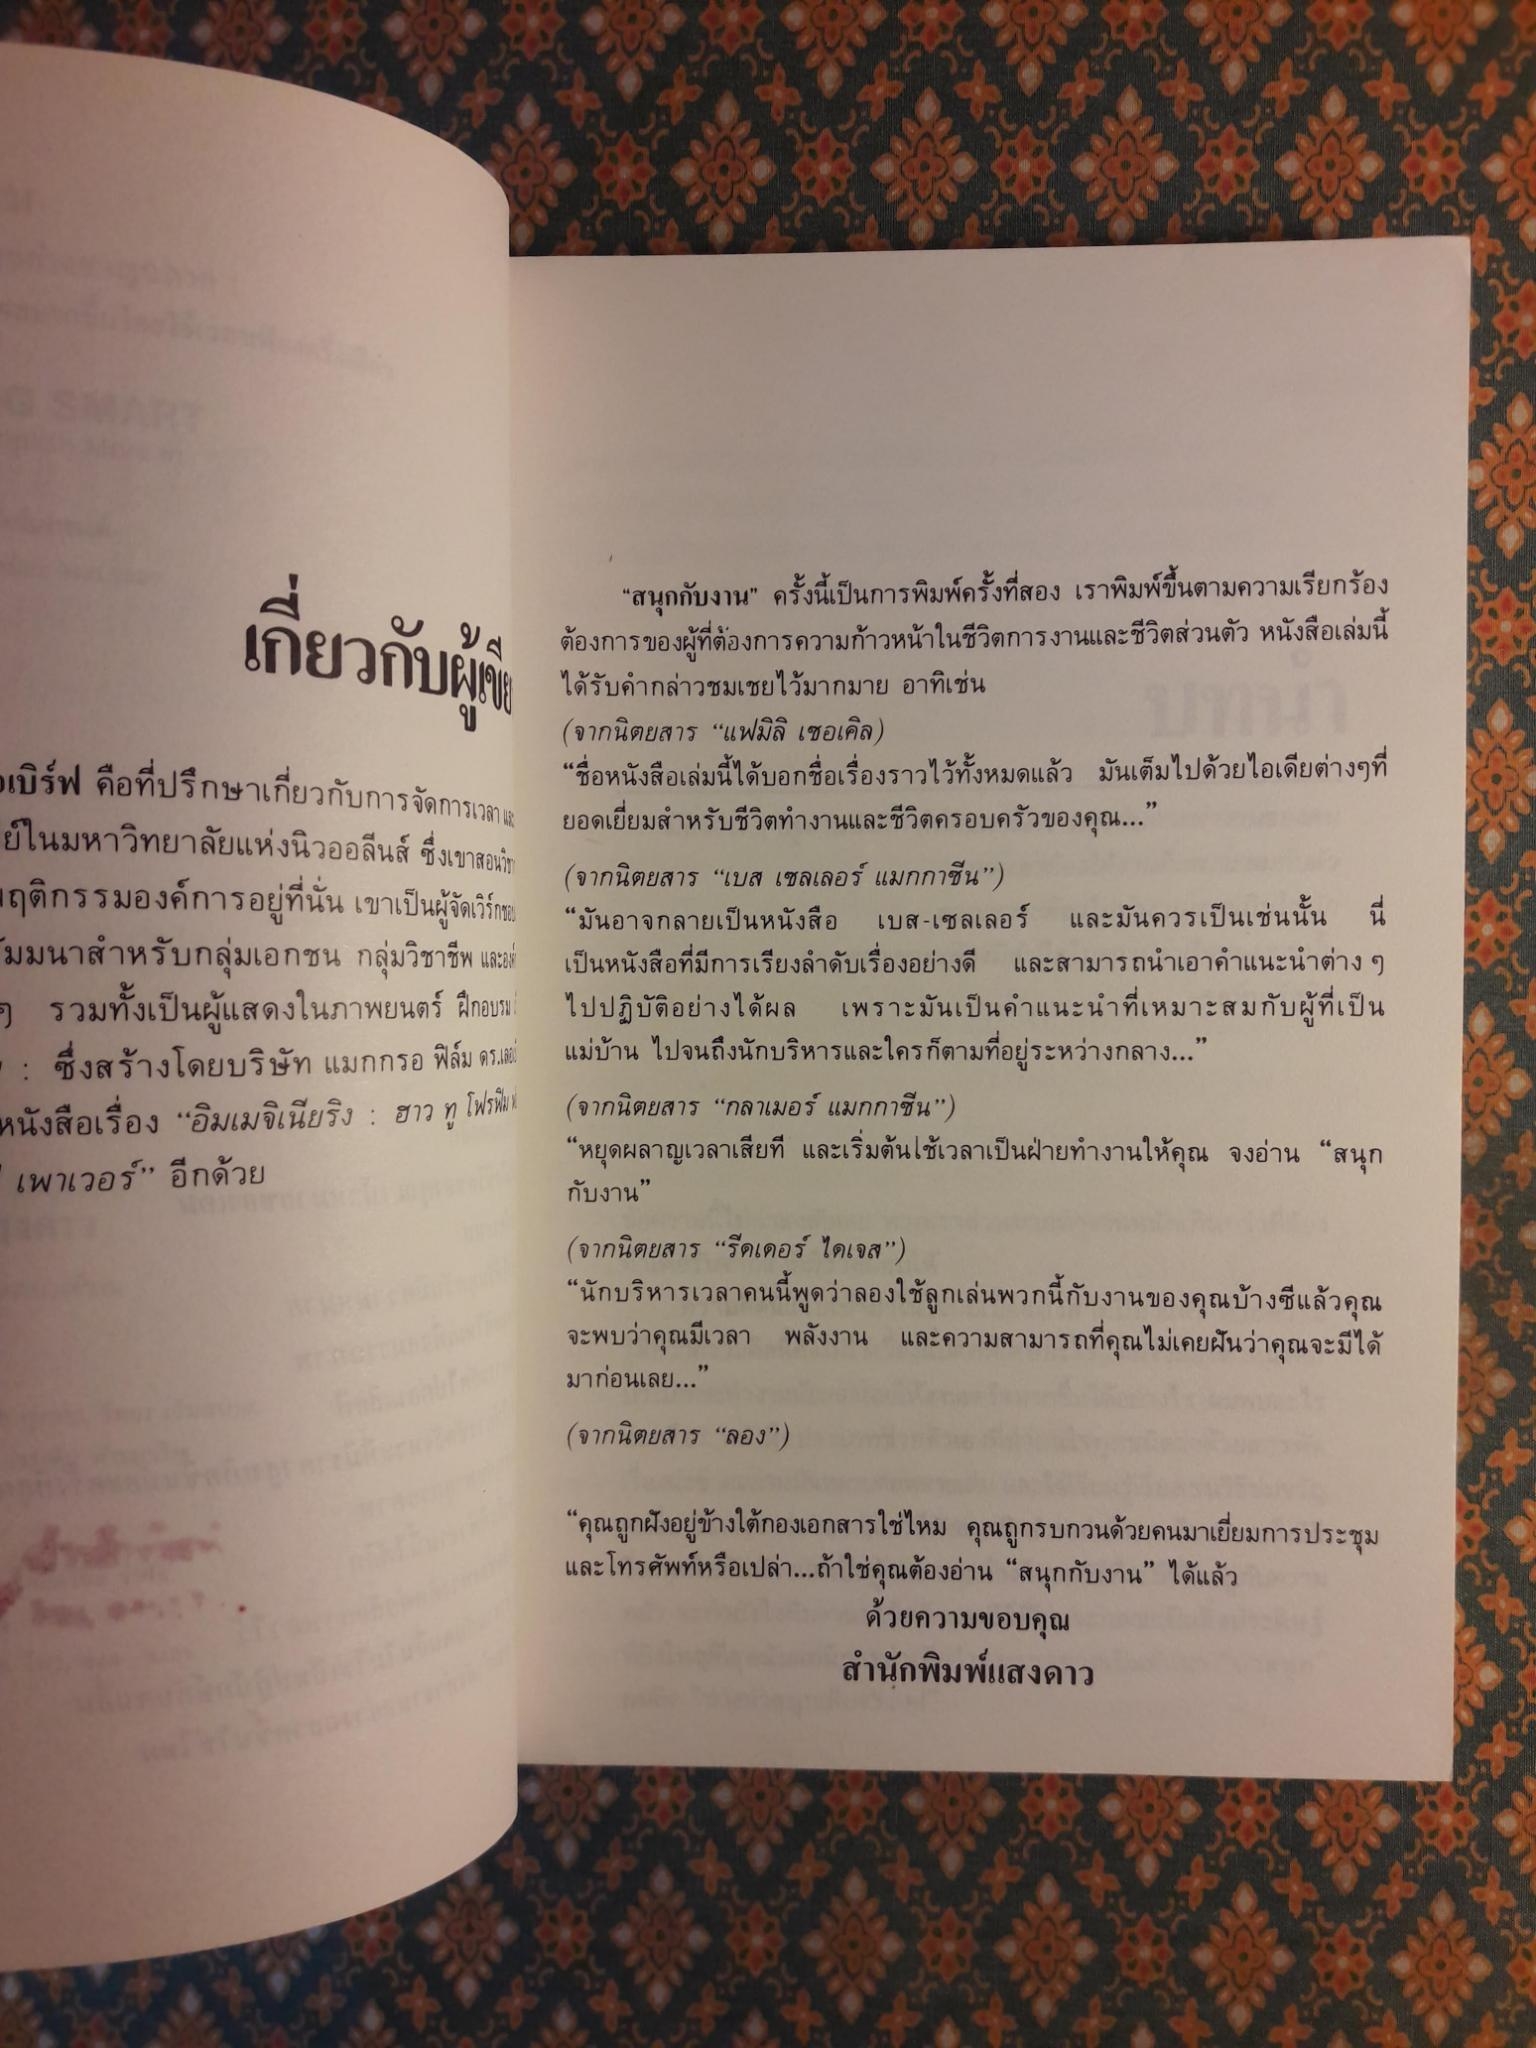 เกี่ยวกับผู้เขีย
อเบิร์ฟ คือที่ปรึกษาเกี่ยวกับการจัดการเวลา และ
ย์ในมหาวิทยาลัยแห่งนิวออลีนส์ ซึ่งเขาสอนวิชา
พฤติกรรมองค์การอยู่ที่นั่น เขาเป็นผู้จัดเวิร์กชอบ
ัมมนาสำหรับกลุ่มเอกชน กลุ่มวิชาชีพ และองค์
ๆ รวมทั้งเป็นผู้แสดงในภาพยนตร์ ฝึกอบรม
: ซึ่งสร้างโดยบริษัท แมกกรอ ฟิล์ม ดร.เลอ
หนังสือเรื่อง “อิมเมจิเนียริง : ฮาว ทู โฟรฟิม
เพาเวอร์” อีกด้วย
“สนุกกับงาน” ครั้งนี้เป็นการพิมพ์ครั้งที่สอง เราพิมพ์ขึ้นตามความเรียกร้อง
ต้องการของผู้ที่ต้องการความก้าวหน้าในชีวิตการงานและชีวิตส่วนตัว หนังสือเล่มนี้
ได้รับคำกล่าวชมเชยไว้มากมาย อาทิเช่น
(จากนิตยสาร “แฟมิลิ เซอเคิล)
“ชื่อหนังสือเล่มนี้ได้บอกชื่อเรื่องราวไว้ทั้งหมดแล้ว มันเต็มไปด้วยไอเดียต่างๆที่
ยอดเยี่ยมสำหรับชีวิตทำงานและชีวิตครอบครัวของคุณ...”
(จากนิตยสาร “เบส เซลเลอร์ แมกกาซีน”)
“มันอาจกลายเป็นหนังสือ เบส-เซลเลอร์ และมันควรเป็นเช่นนั้น นี่
เป็นหนังสือที่มีการเรียงลำดับเรื่องอย่างดี และสามารถนำเอาคำแนะนำต่าง ๆ
ไปปฏิบัติอย่างได้ผล เพราะมันเป็นคำแนะนำที่เหมาะสมกับผู้ที่เป็น
แม่บ้าน ไปจนถึงนักบริหารและใครก็ตามที่อยู่ระหว่างกลาง...”
(จากนิตยสาร “กลาเมอร์ แมกกาซีน”)
“หยุดผลาญเวลาเสียที และเริ่มต้นใช้เวลาเป็นฝ่ายทำงานให้คุณ จงอ่าน “สนุก
กับงาน”
(จากนิตยสาร “รีดเดอร์ ไดเจส”)
“นักบริหารเวลาคนนี้พูดว่าลองใช้ลูกเล่นพวกนี้กับงานของคุณบ้างซีแล้วคุณ
จะพบว่าคุณมีเวลา พลังงาน และความสามารถที่คุณไม่เคยฝันว่าคุณจะมีได้
มาก่อนเลย...”
(จากนิตยสาร “ลอง”)
“คุณถูกฝังอยู่ข้างใต้กองเอกสารใช่ไหม คุณถูกรบกวนด้วยคนมาเยี่ยมการประชุม
และโทรศัพท์หรือเปล่า...ถ้าใช่คุณต้องอ่าน “สนุกกับงาน” ได้แล้ว
ด้วยความขอบคุณ
สำนักพิมพ์แสงดาว